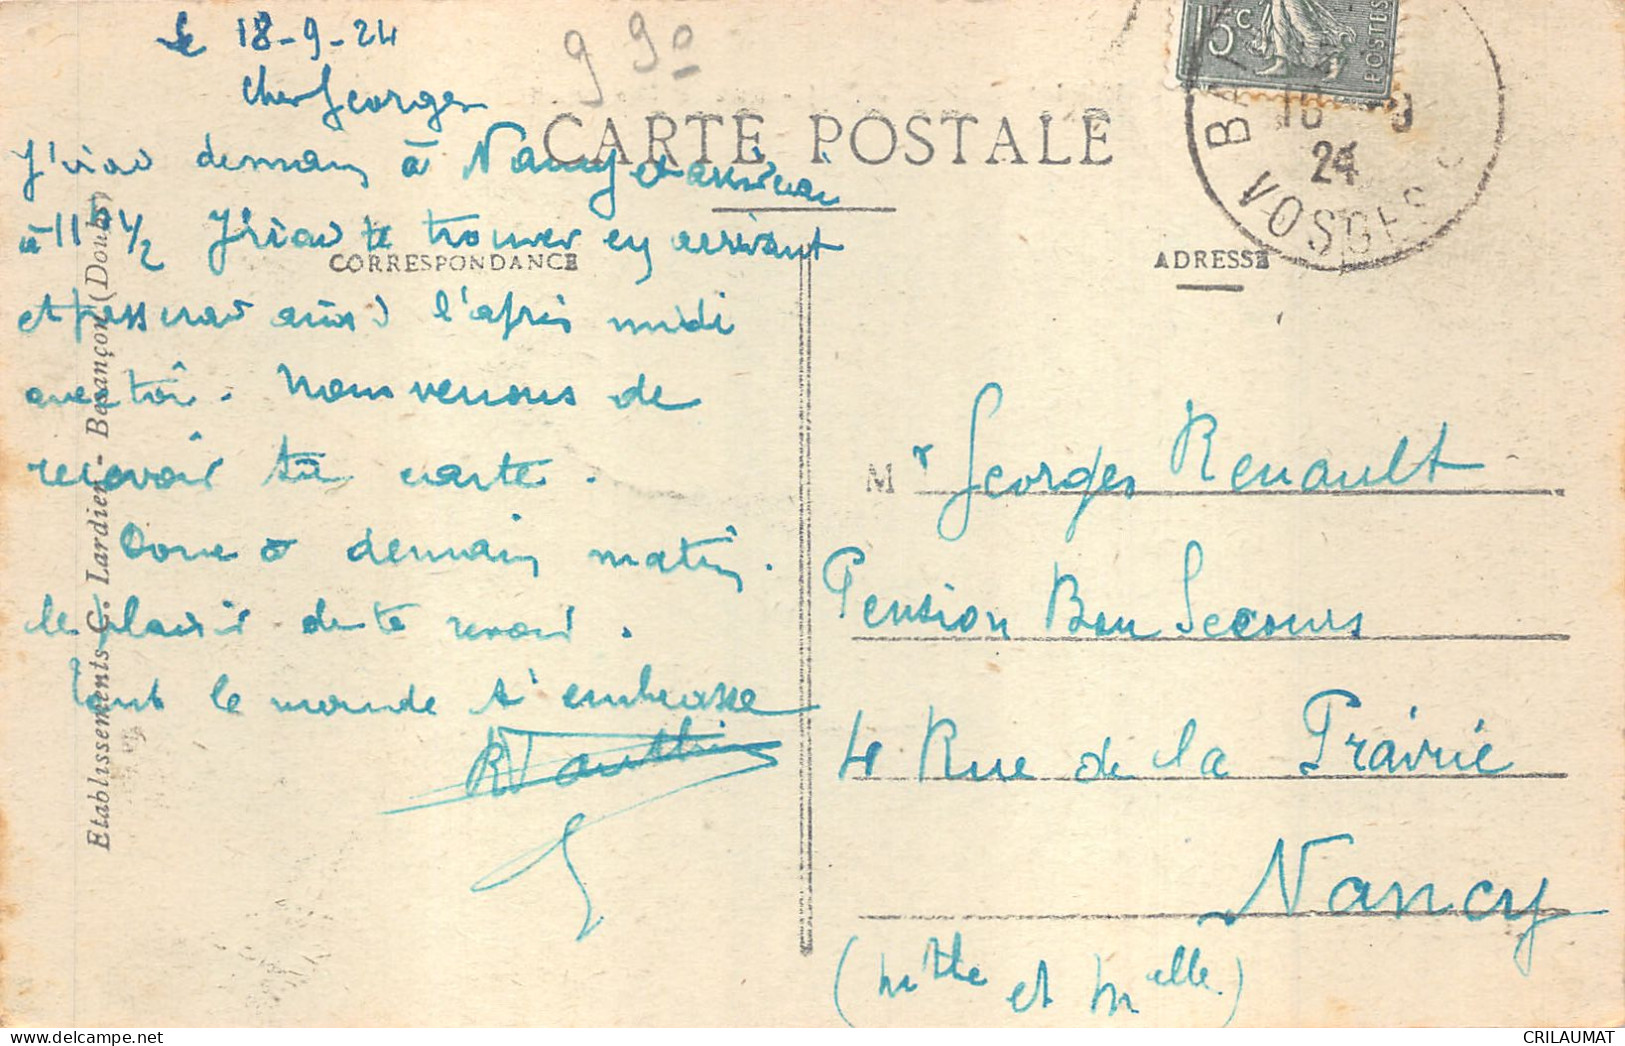 le 18-9-24
99°
Cher Georges
CARTE POSTALE
J'irai demain à Nancy et arriverai
à 11h 1/2 J'irai te trouver en arrivant
CORRESPONDANCE
et passerai ainsi l'après midi
avec toi. Nous venons de
recevoir ta carte.
Donc à demain matin.
le plaisir de te revoir.
Tout le monde t'embrasse
Etablissements C. Lardier - Besançon (Doubs)
15c
POSTES
BA
18 -9
24
VOSGES
ADRESSE
Mr Georges Renault
Pension Bon Secours
4 Rue de la Prairie
Nancy
(Mthe et Melle.)
CRILAUMAT